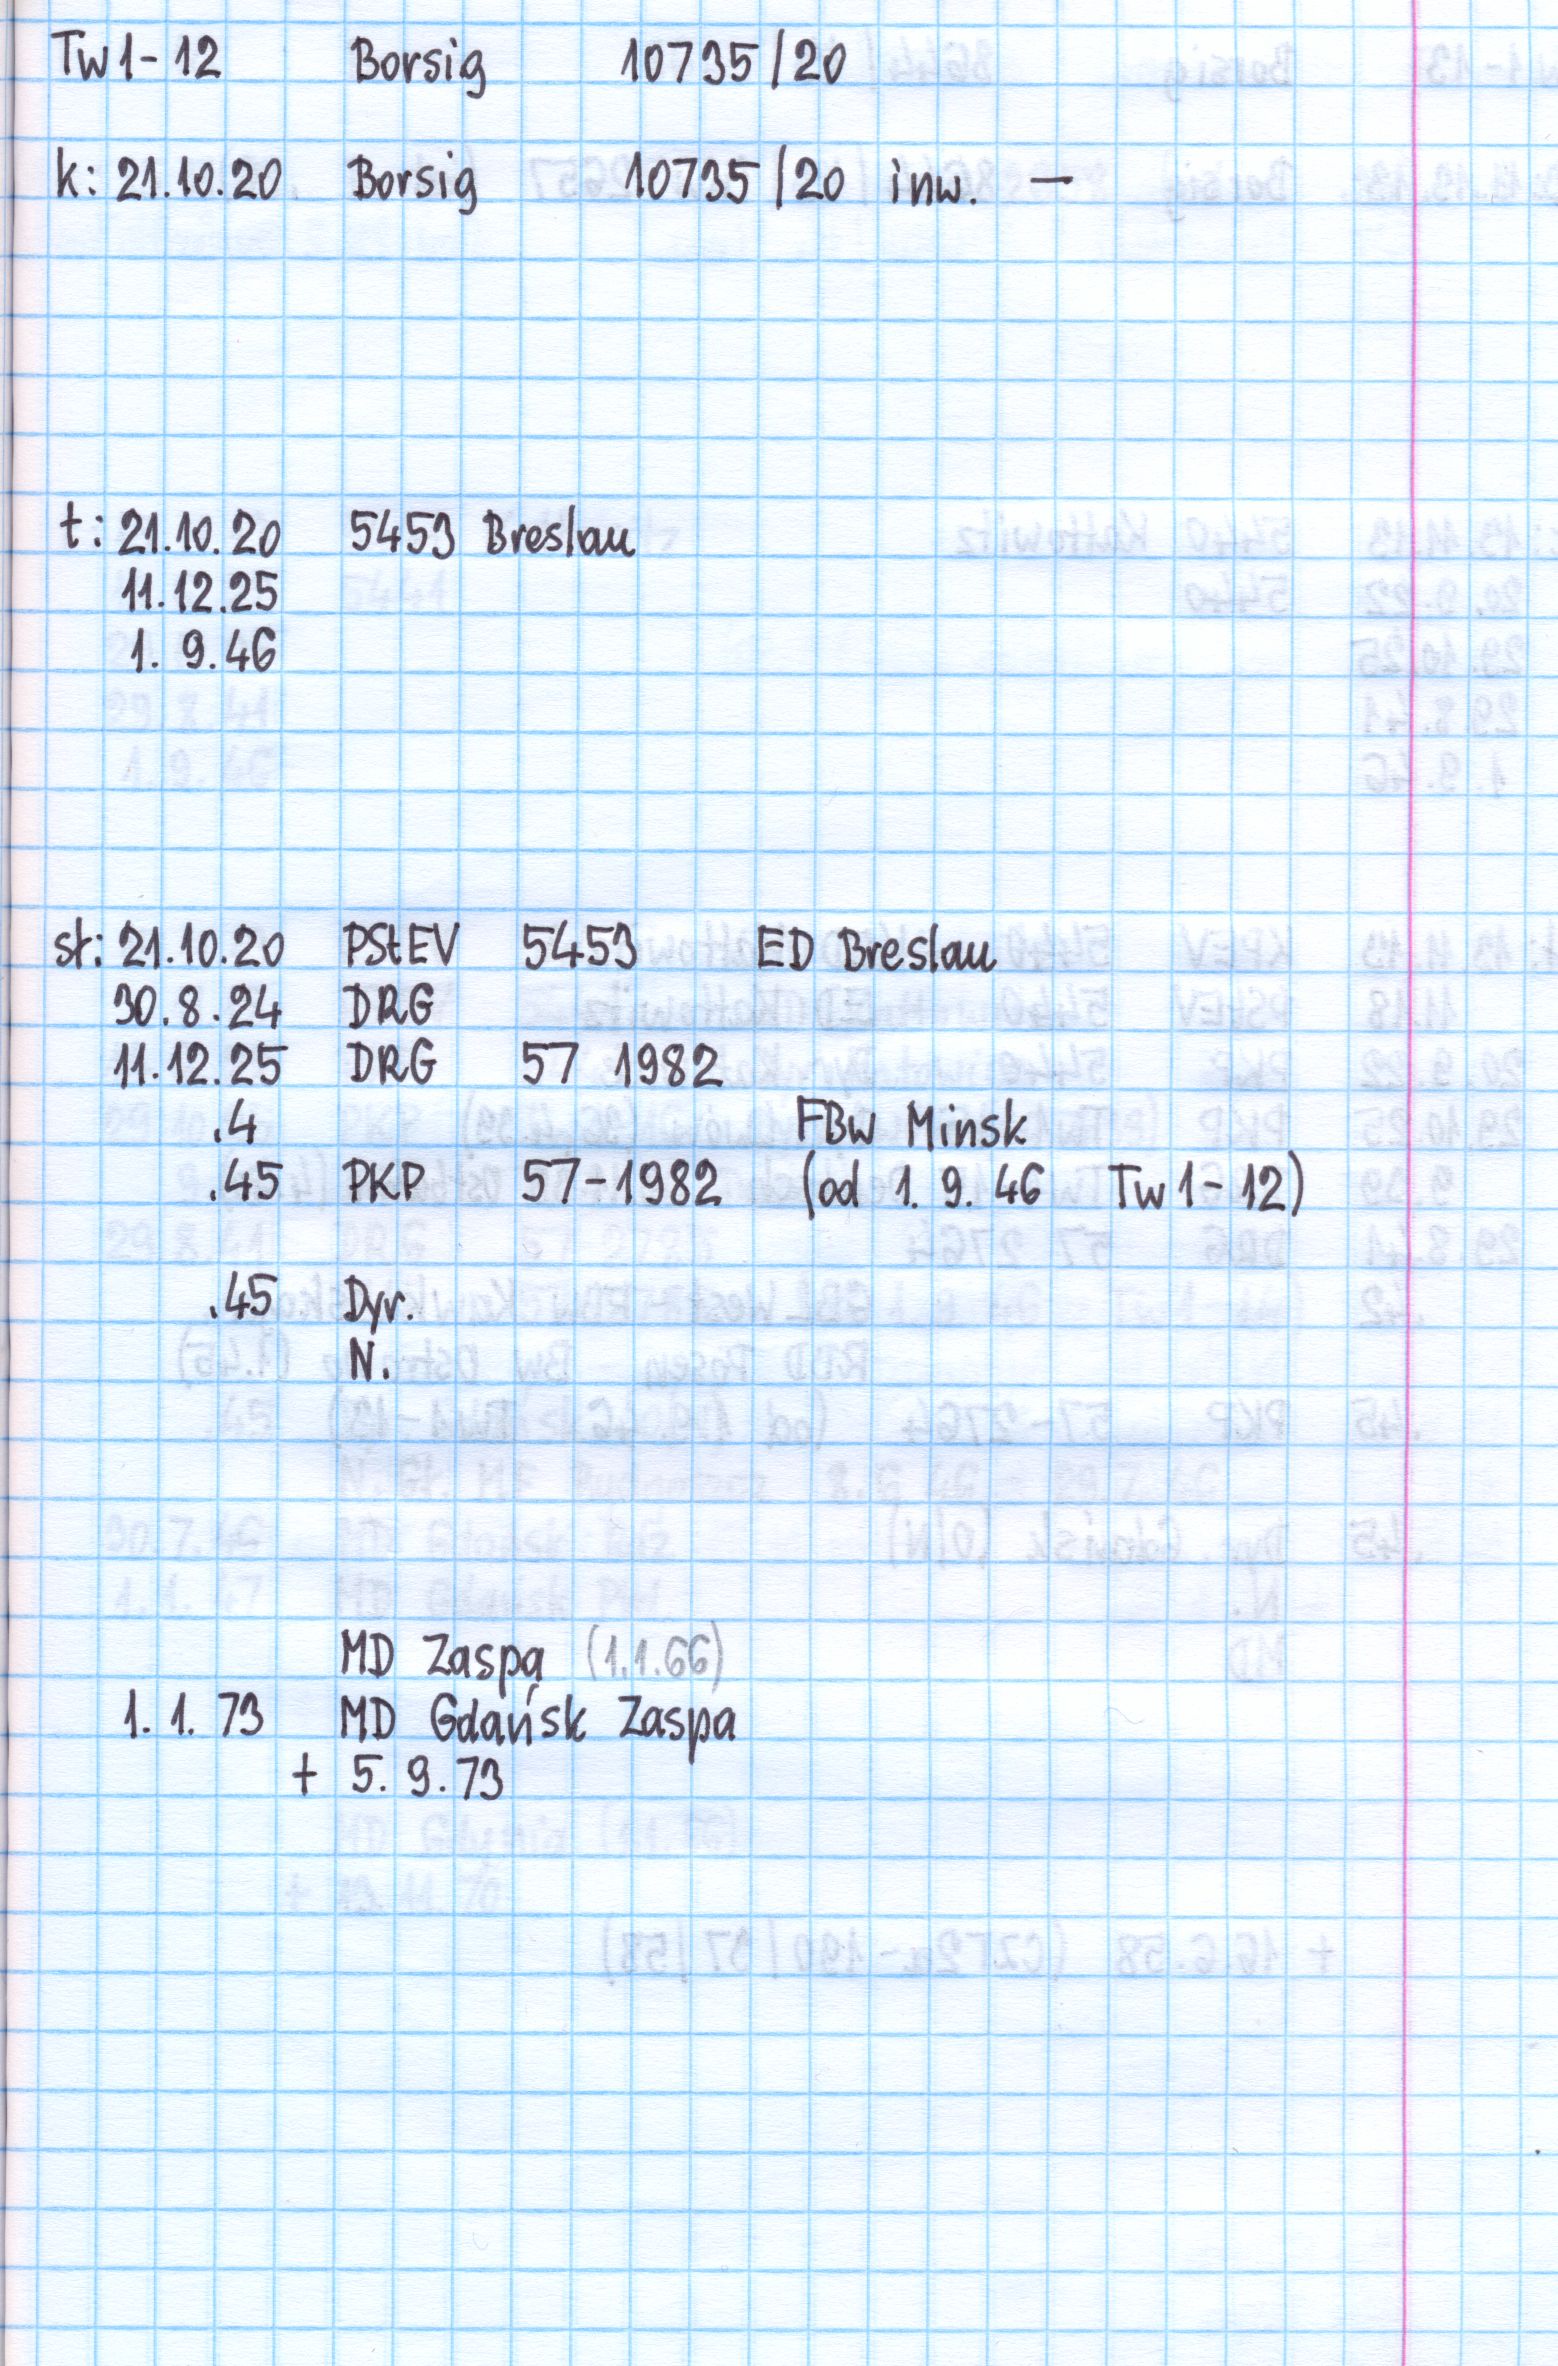 Tw1-12 Borsig 10735/20
k: 21.10.20 Borsig 10735/20 inw. —
t: 21.10.20 5453 Breslau
11.12.25
1. 9.46
st: 21.10.20 PStEV 5453 ED Breslau
30.8.24 DRG
11.12.25 DRG 57 1982
.4 FBw Minsk
.45 PKP 57-1982 (od 1. 9. 46 Tw1-12)
.45 Dyr.
N.
MD Zaspa (1.1.66)
1. 1. 73 MD Gdańsk Zaspa
+ 5. 9. 73